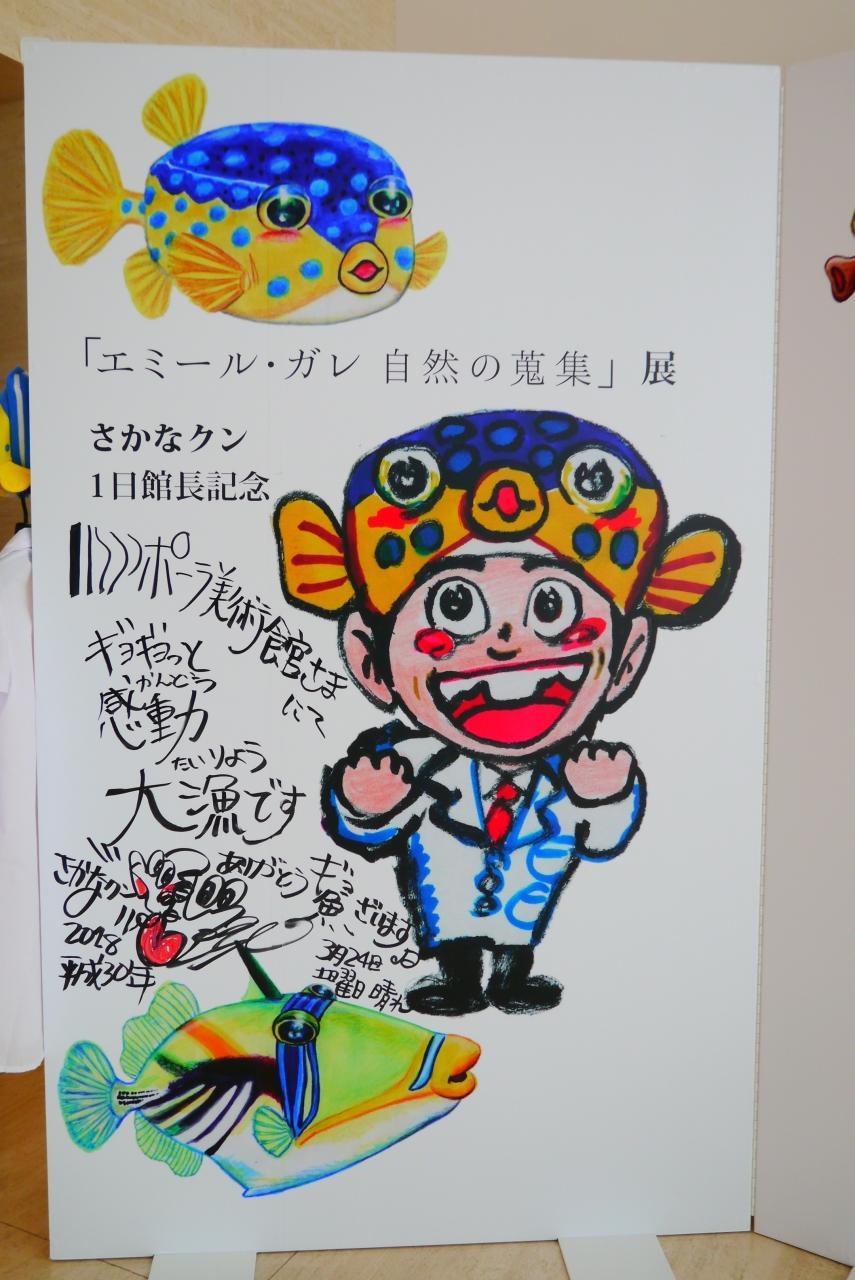 「エミール・ガレ 自然の蒐集」展
さかなクン
1日館長記念
ポーラ美術館さま
にて
ギョギョっと
かんどう
感動
たいりょう
大漁です
さかなクン
ありがとう
ギョ
ざいます
2018
平成30年
3月24日
土曜日 晴れ